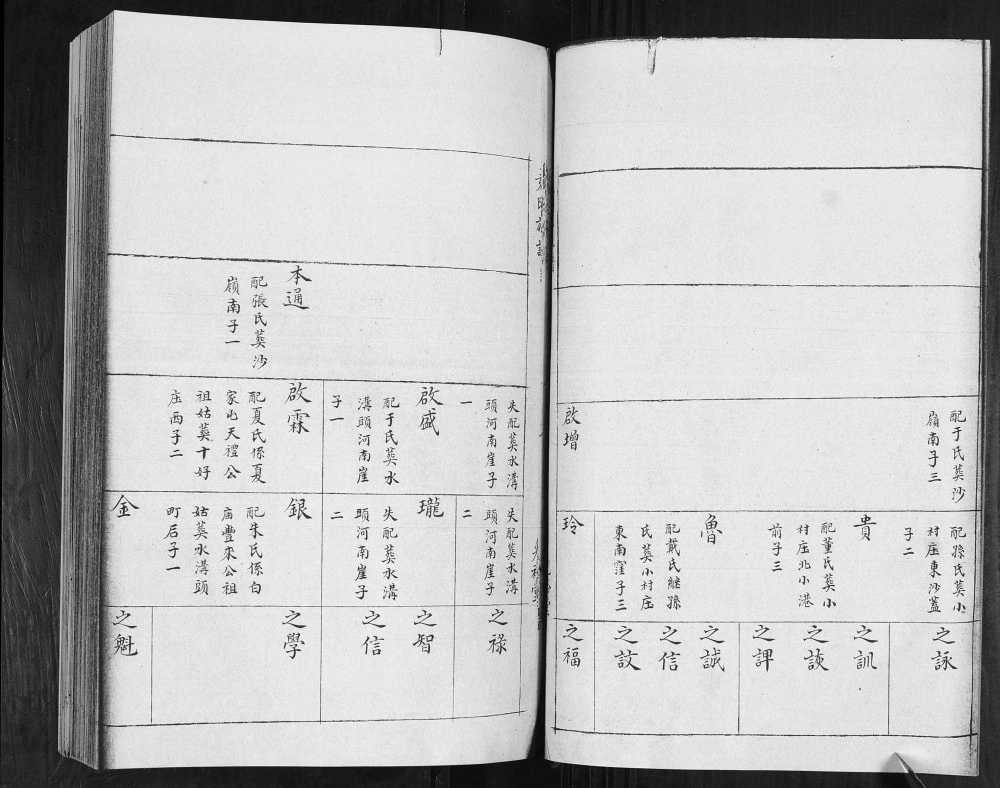 配于氏葬沙
嶺南子三
啟增
配孫氏葬小
村庄東沙蓋
子二
貴
配董氏葬小
村庄北小港
前子三
魯
配戴氏継孫
氏葬小村庄
東南窪子三
玲
之詠
之訓
之談
之諀
之誠
之信
之訍
之福
本通
配張氏葬沙
嶺南子一
失配葬水溝
頭河南崖子
一
啟盛
配于氏葬水
溝頭河南崖
子一
啟霖
配夏氏係夏
家屯天禮公
祖姑葬十好
庄西子二
失配葬水溝
頭河南崖子
二
瓏
失配葬水溝
頭河南崖子
二
銀
配朱氏係白
庙豐來公祖
姑葬水溝頭
町后子一
金
之祿
之智
之信
之學
之魁